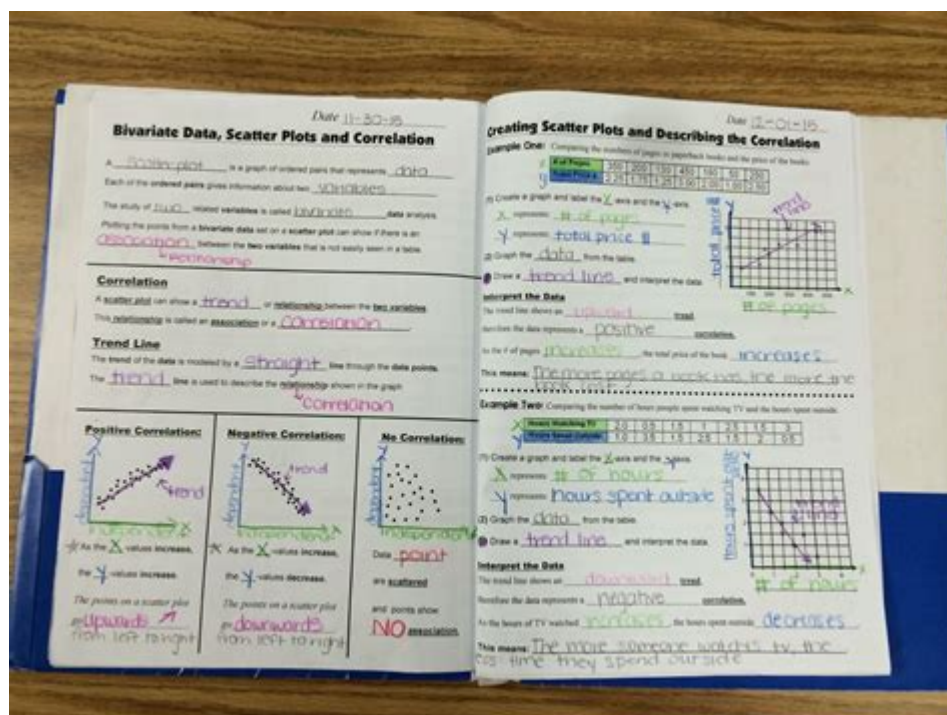 Date 11-30-15
Bivariate Data, Scatter Plots and Correlation
A scatter plot is a graph of ordered pairs that represents data
Each of the ordered pairs gives information about two variables
The study of two related variables is called bivariate data analysis.
Plotting the points from a bivariate data set on a scatter plot can show if there is an
association between the two variables that is not easily seen in a table.
relationship
Correlation
A scatter plot can show a trend or relationship between the two variables.
This relationship is called an association or a correlation
Trend Line
The trend of the data is modeled by a straight line through the data points.
The trend line is used to describe the relationship shown in the graph
correlation
Positive Correlation:
Y
dependent
trend
independent X
As the X-values increase,
the Y-values increase.
The points on a scatter plot
go upwards
from left to right
Negative Correlation:
Y
dependent
trend
independent X
As the X-values increase,
the Y-values decrease.
The points on a scatter plot
go downwards
from left to right
No Correlation:
Y
dependent
independent X
Data point
are scattered
and points show
NO association.
Date 12-01-15
Creating Scatter Plots and Describing the Correlation
Example One: Comparing the numbers of pages in paperback books and the price of the books
X # of Pages
Y
(1) Create a graph and label the X-axis and the y-axis.
X represents # of pages
Y represents total price $
(2) Graph the data from the table.
Draw a trend line and interpret the data.
total price $
trend line
X
# of pages
Interpret the Data
The trend line shows an upward trend,
therefore the data represents a positive correlation.
As the # of pages increases, the total price of the book increases
This means: The more pages a book has the more the
book cost
Example Two: Comparing the number of hours people spent watching TV and the hours spent outside.
X Hours Watching TV 2.0 0.5 1.5 1 2.5 1.5 3
Y Hours Spent Outside 1.0 3.5 1.5 2.5 1.5 2 0.5
(1) Create a graph and label the X-axis and the y-axis.
X represents # of hours
Y represents hours spent outside
(2) Graph the data from the table.
Draw a trend line and interpret the data.
hours spent outside
trend line
X
# of hours
Interpret the Data
The trend line shows an downward trend,
therefore the data represents a negative correlation.
As the hours of TV watched increases, the hours spent outside decreases
This means: The more someone watches tv, the
less time they spend outside